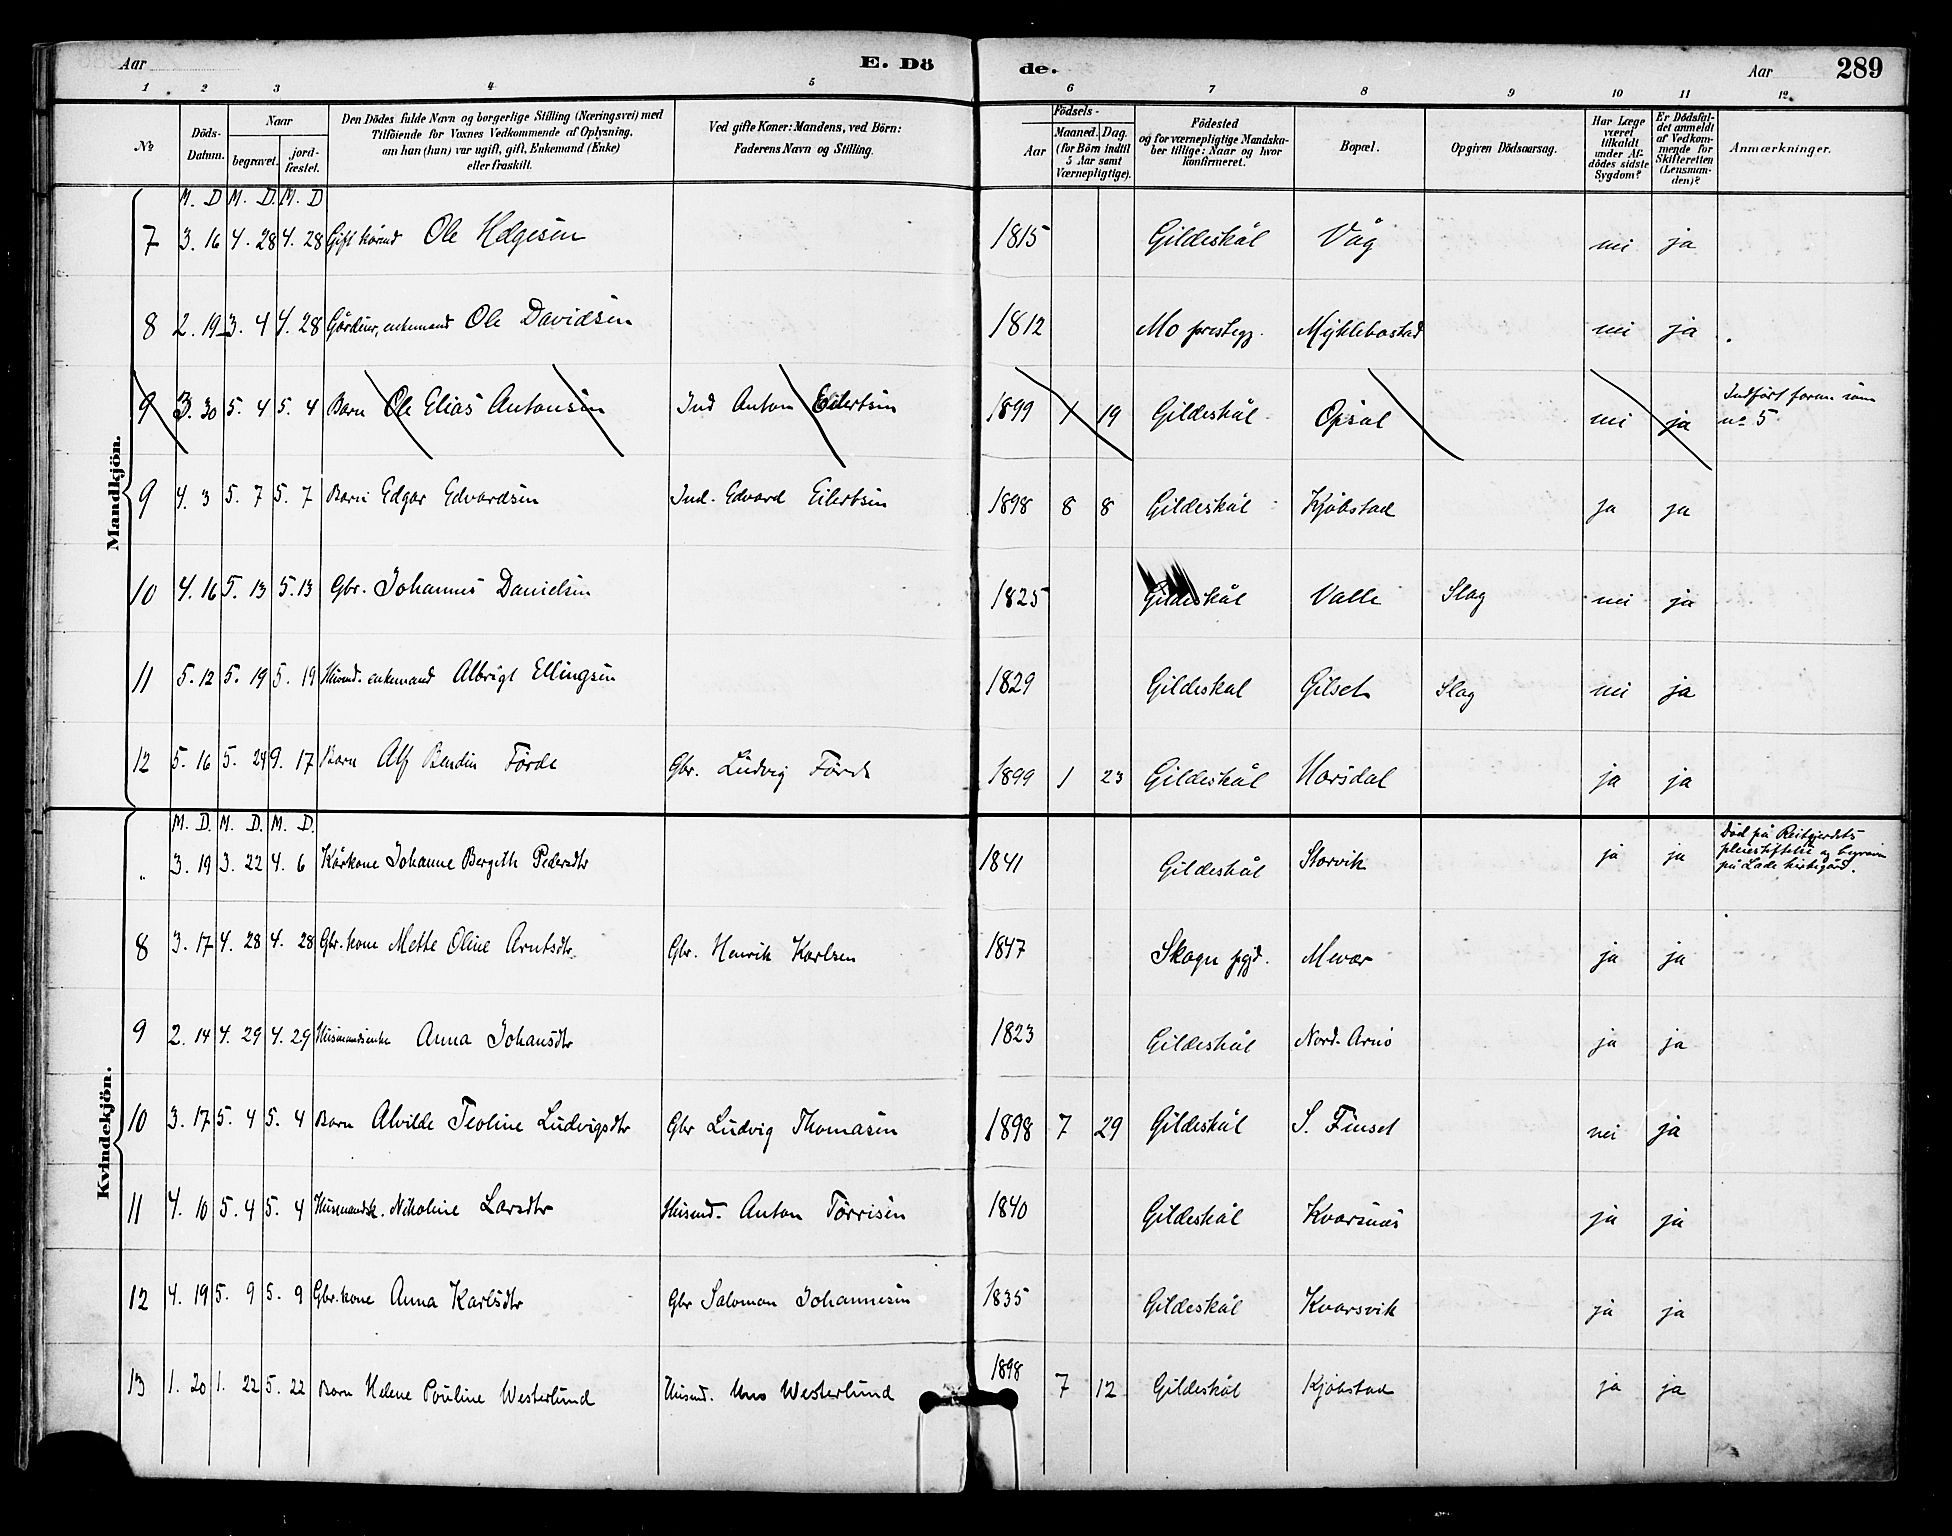 Aar E. Dö de. Aar 289
1 2 3 4 5 6 7 8 9 10 11 12.
No
Döds-Datum.
Naar
begravet.
jord-fæstet.
Den Dödes fulde Navn og borgerlige Stilling (Næringsvei) med
Tilföiende for Voxnes Vedkommende af Oplysning,
om han (hun) var ugift, gift, Enkemand (Enke)
eller fraskilt.
Ved gifte Koner: Mandens, ved Börn:
Faderens Navn og Stilling.
Födsels-
Aar
Maaned. Dag.
(for Börn indtil
5 Aar samt
Værnepligtige).
Födested
og for værnepligtige Mandska-
ber tillige: Naar og hvor
konfirmeret.
Bopæl.
Opgiven Dödsaarsag.
Har Læge
været
tilkaldt
under Af-
dödes sidste
Sygdom?
Er Dödsfal-
det anmeldt
af Vedkom-
mende for
Skifteretten
(Lensman-
den)?
Anmærkninger.
Mandkjön.
M. D M. D. M. D
7 3. 16 4. 28 4. 28 Gift Ole Helgesen 1815 Gildeskål Våg nei ja
8 2. 19 3. 4 4. 28 enkemand Ole Davidsen 1812 Mo prestegj. Myklebostad nei ja
9 3. 30 5. 4 5. 4 Barn Ole Elias Antonsen Ind Anton Eilertsen 1899 1 19 Gildeskål Opsal nei ja Indført foran som
no 5
9 4. 3 5. 7 5. 7 Barn Edgar Edvardsen Ind. Edvard Eilertsen 1898 8 8 Gildeskål Kjøbstad ja ja
10 4. 16 5. 13 5. 13 Gbr. Johannes Danielsen 1825 Gildeskål Valle Slag nei ja
11 5. 12 5. 19 5. 19 Husmd. enkemand Albrigt Ellingsen 1829 Gildeskal Gilset Slag nei ja
12 5. 16 5. 24 9. 17 Barn Alf Førde Gbr. Ludvig Førde 1899 1 23 Gildeskål Horsdal ja ja
Kvindekjön.
M. D. M. D. M. D.
„ 3. 19 3. 22 4. 6 Kårkone Johanne Bergeth Pedersdtr 1841 Gildeskål Storvik ja ja Død på Reitgjerdets
pleiestiftelse og begraven
på Lade kirkegård.
8 3. 17 4. 28 4. 28 Gbr. kone Mette Oline Arntsdtr. Gbr. Henrik Karlsen 1847 Skogn pgjd. Mevær ja ja
9 2. 14 4. 29 4. 29 Husmandsenke Anna Johansdtr 1823 Gildeskål Nord-Arnø ja ja
10 3. 17 5. 4 5. 4 Barn Alvilde Teoline Ludvigsdtr Gbr Ludvig Thomasen 1898 7 29 Gildeskål S. Finset nei ja
11 4. 10 5. 4 5. 4 Husmandsk. Nikoline Larsdtr Husmd. Anton Tørrisen 1840 Gildeskål Kvarsnæs ja ja
12 4. 19 5. 9 5. 9 Gbr. kone Anna Karlsdtr Gbr Salomon Johannesen 1835 Gildeskål Kvarsvik ja ja
13 1. 20 1. 22 5. 22 Barn Helene Pouline Westerlund Husmd. Westerlund 1898 7 12 Gildeskål Kjøbstad ja ja